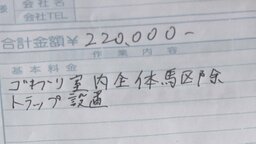 会社名
会社TEL
合計金額¥220,000-
作業内容
基本料金
ゴキブリ室内全体馬区除
トラップ設置